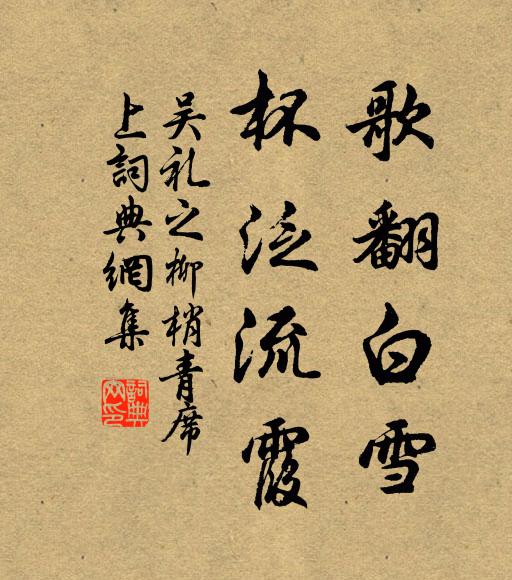 歌翻白雪
杯泛流霞
吴礼之柳梢青席
上詞典網集
詞典网印